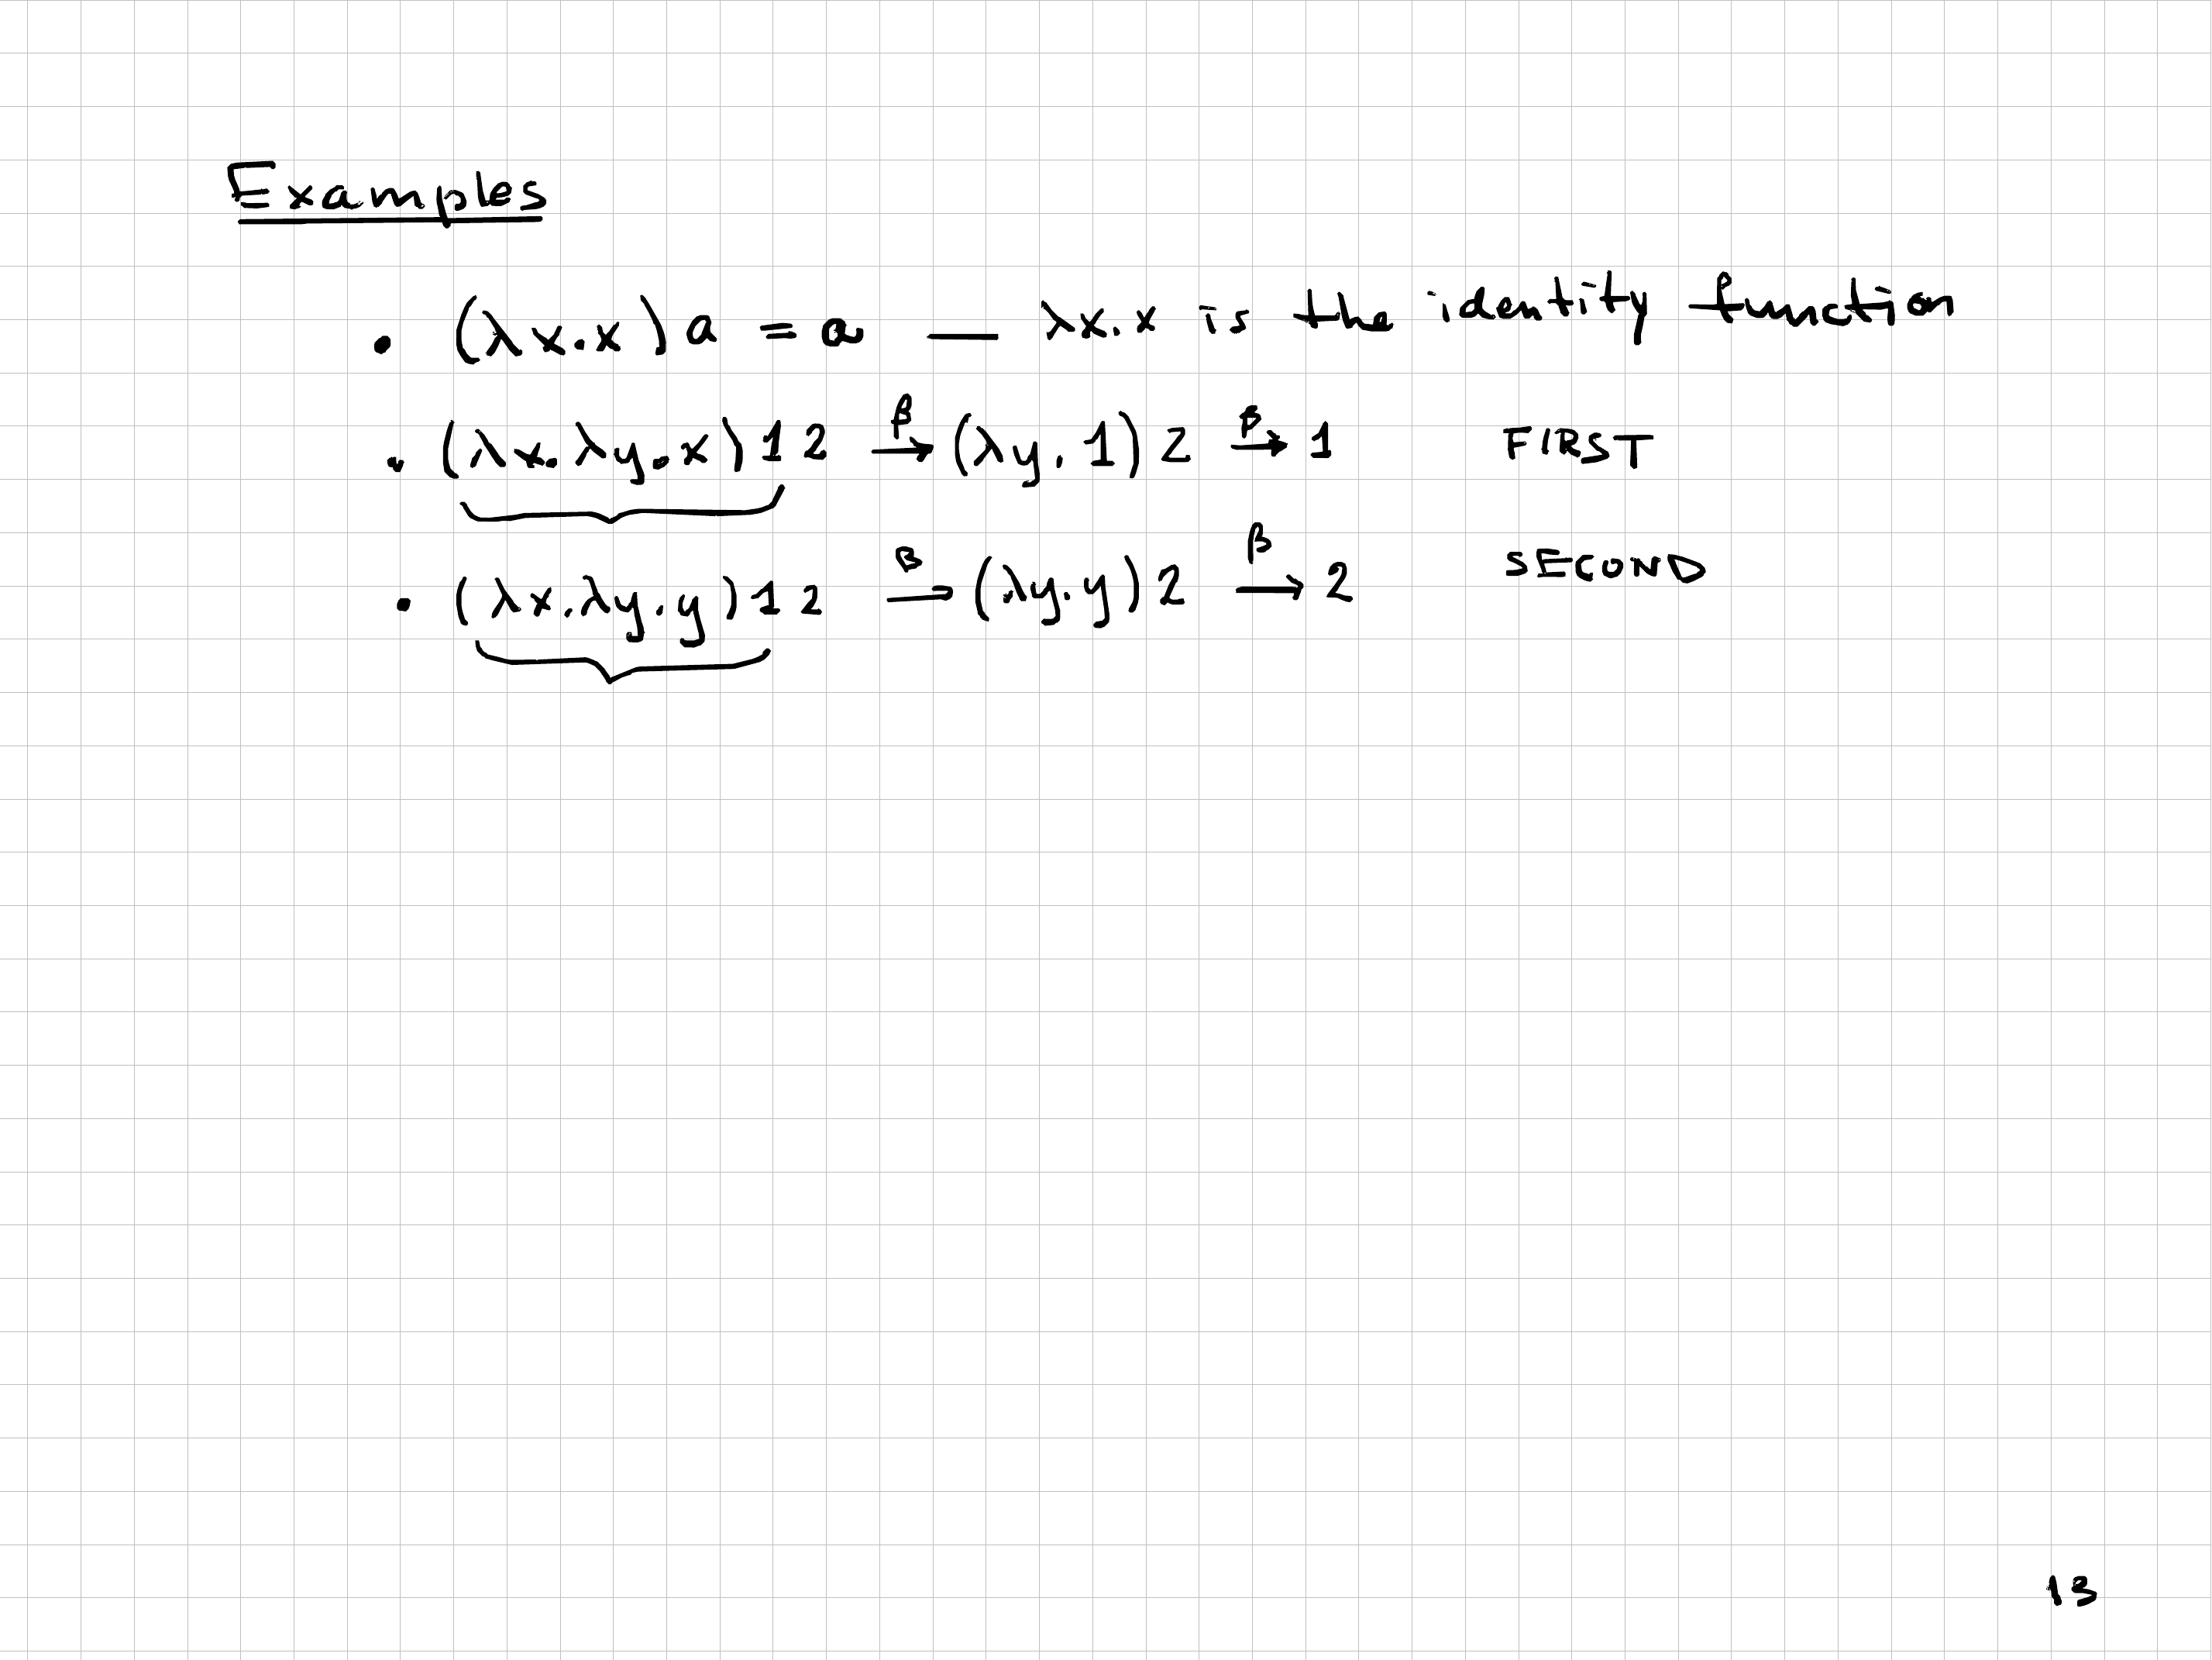 Examples
• (λx.x)a = a — λx.x is the identity function
• (λx.λy.x)12 →β (λy.1)2 →β 1 FIRST
• (λx.λy.y)12 →β (λy.y)2 →β 2 SECOND
13